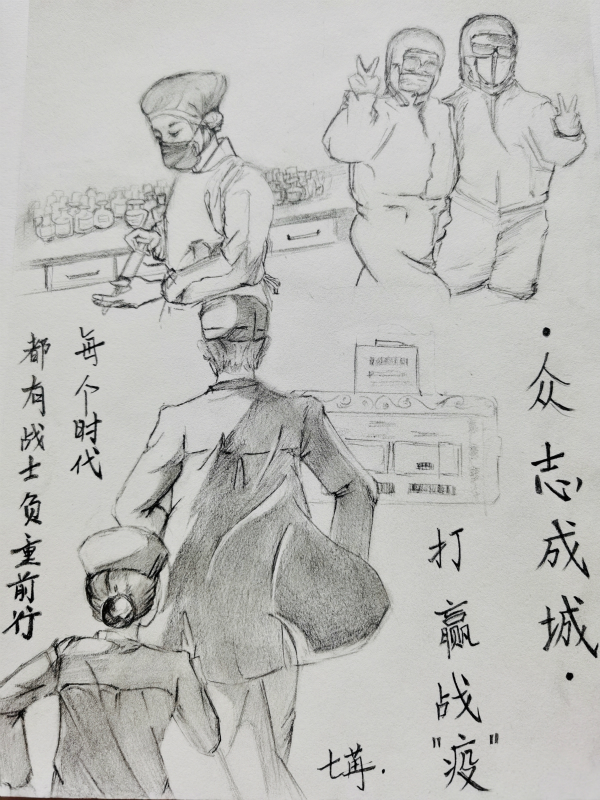 ·众志成城·
打赢战"疫"
每个时代
都有战士负重前行